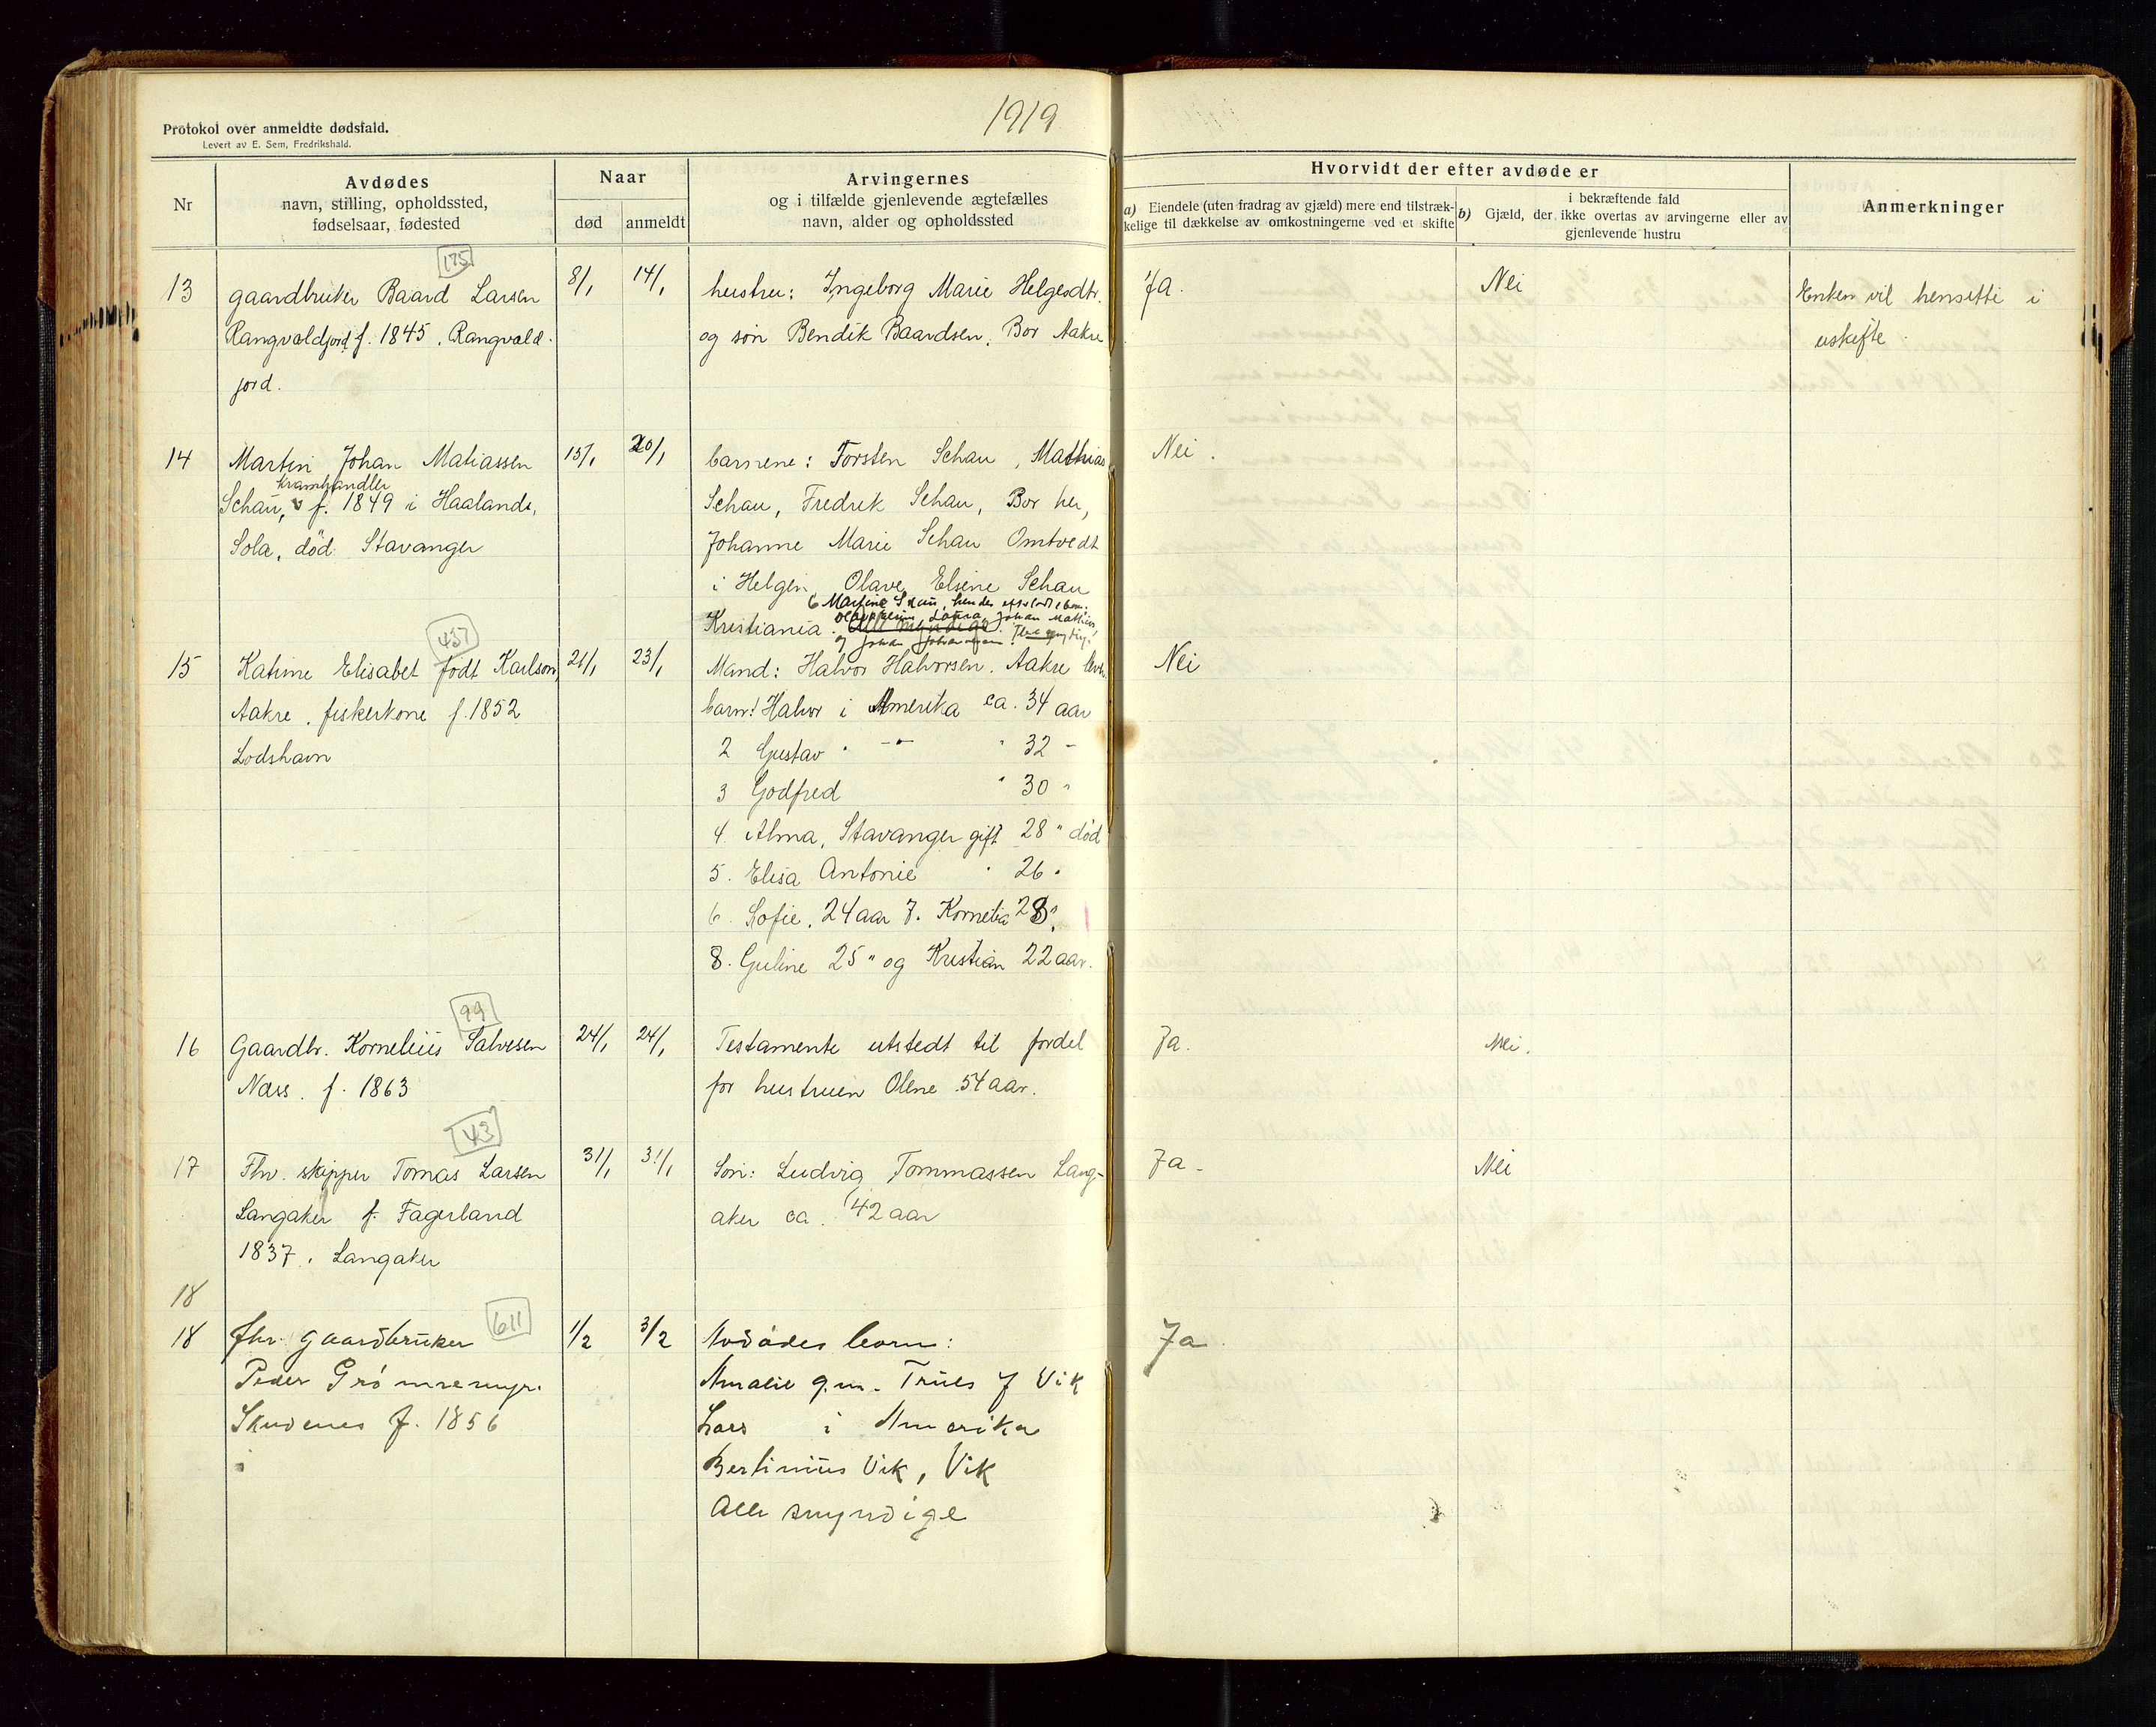 1919
Protokol over anmeldte dødsfald.
Levert av E. Sem, Fredrikshald.
Nr
Avdødes
navn, stilling, opholdssted,
fødselsaar, fødested
Naar
død
anmeldt
Arvingernes
og i tilfælde gjenlevende ægtefælles
navn, alder og opholdssted
Hvorvidt der efter avdøde er
a) Eiendele (uten fradrag av gjæld) mere end tilstræk-
kelige til dækkelse av omkostningerne ved et skifte
i bekræftende fald
b) Gjæld, der ikke overtas av arvingerne eller av
gjenlevende hustru
Anmerkninger
175
13 gaardbruker Baard Larsen 8/1 14/1 hustru: Ingeborg Marie Helgesdtr. Ja. Nei Enken vil hensitte i
Rangvaldjord f. 1845. Rangvald- og søn Bendik Baardsen, Bor Aakre uskifte.
jord.
14 Martin Johan Matiassen 15/1 20/1 barnene: Torsten Schau, Mathias Nei.
kramhandler
Schau, f. 1849 i Haalands, Schau, Fredrik Schau, Bor her,
Sola, død Stavanger Johanne Marie Schau Omtvedt
i Helgen Olave Elsine Schau
6 Martine
Laura, Johan Mathias
Kristiania. Alle myndige
437
15 Katrine Elisabet født Karlson, 21/1 23/1 Mand: Halvor Halvorsen. Aakre Nei
Aakre. fiskerkone f. 1852 barn: Halvor i Amerika ca. 34 aar
Lodshavn 2 Gustav " -"- " 32 -
3 Godfred " 30 "
4. Alma, Stavanger gift 28 " død
5. Elisa Antonie " 26 "
6. Sofie. 24 aar 7. Kornelia 28 "
8. Guline 25 " og Kristian 22 aar.
99
16 Gaardbr. Kornelius Salvesen 24/1 24/1 Testamente utstedt til fordel Ja. Nei.
Næss. f. 1863 for hustruen Olene 54 aar.
43
17 Fhv. skipper Tomas Larsen 31/1 31/1 Søn: Ludvig Tommassen Lang- Ja. Nei
Langaker f. Fagerland aker ca. 42 aar
1837. Langaker
18
611
18 fhv. gaardbruker 1/2 3/2 Avdødes barn: Ja.
Peder Grønnemyr. Amalie g.m. Truls J Vik
Skudenes f. 1856 Lars i Amerika
Bertinius Vik, Vik
Alle myndige